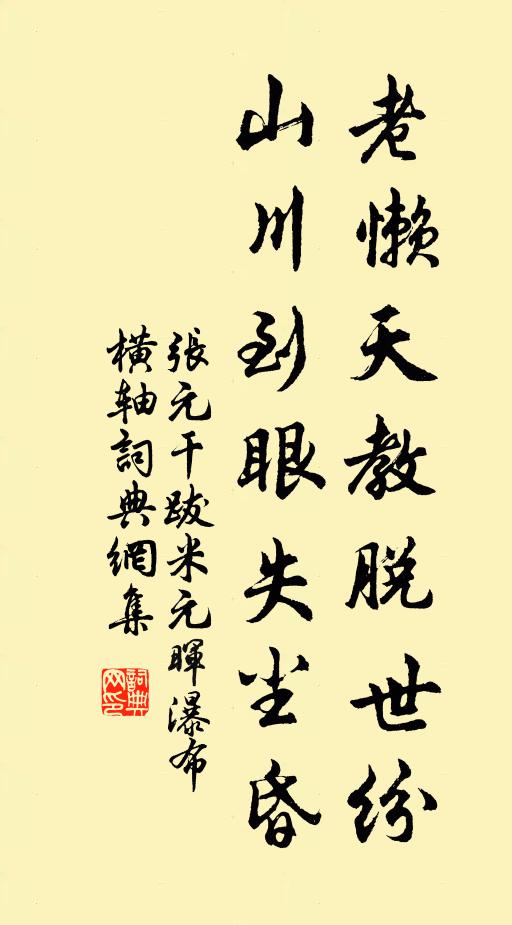 老懒天教脱世纷
山川到眼失尘昏
張元干跋米元暉瀑布
横轴詞典網集
詞典网印